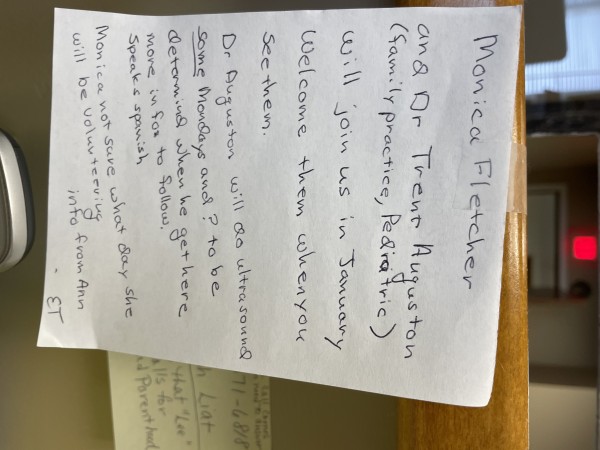 Monica Fletcher
and Dr Trent Auguston
(family practice, Pediatric)
will join us in January
Welcome them when you
see them.
Dr Auguston will do ultrasound
some Mondays and ? to be
determind when he get here
more info to follow.
Speaks spanish
Monica not sure what day she
will be volunteering
info from Ann
- ET
71-6818
h List
that "Lee"
alls for
d Parenthood